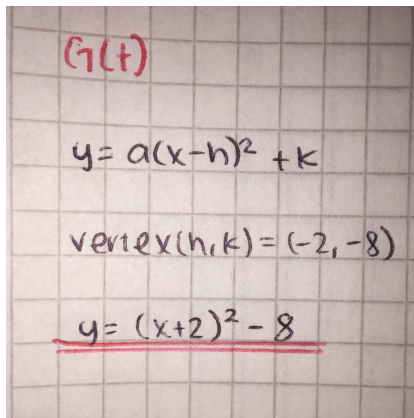 G(t)
y = a(x-h)² + k
vertex(h,k) = (-2, -8)
y = (x+2)² - 8